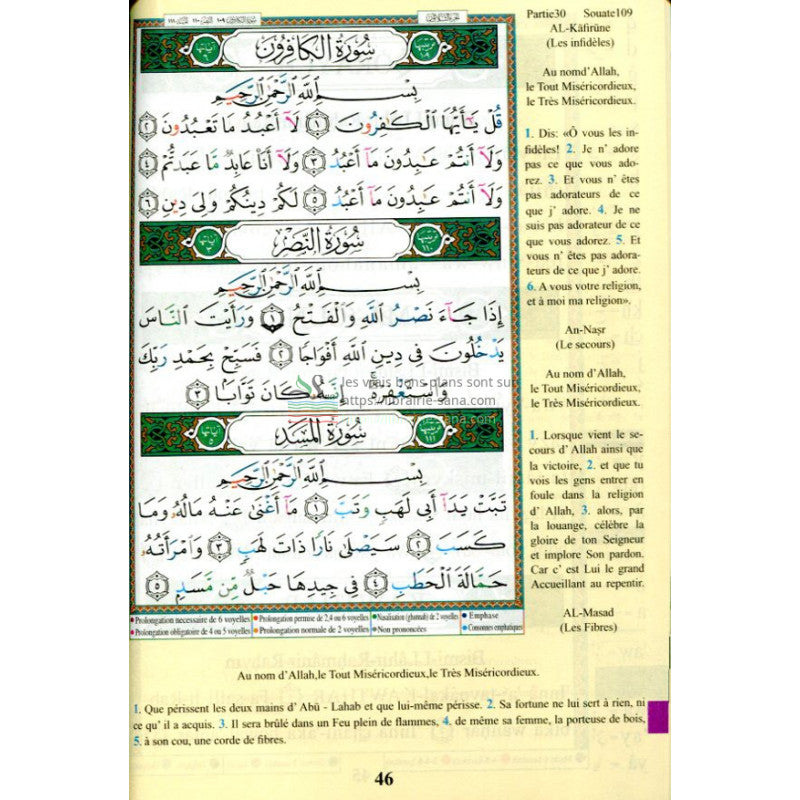 سورة الكافرون ١٠٩
النصر ١١٠
الجزء الثلاثون
سُورَةُ الكَافِرُونَ
بِسْمِ ٱللَّهِ ٱلرَّحْمَٰنِ ٱلرَّحِيمِ
قُلْ يَٰٓأَيُّهَا ٱلْكَٰفِرُونَ ١ لَآ أَعْبُدُ مَا تَعْبُدُونَ ٢
وَلَآ أَنتُمْ عَٰبِدُونَ مَآ أَعْبُدُ ٣ وَلَآ أَنَا۠ عَابِدٌ مَّا عَبَدتُّمْ ٤
وَلَآ أَنتُمْ عَٰبِدُونَ مَآ أَعْبُدُ ٥ لَكُمْ دِينُكُمْ وَلِىَ دِينِ ٦
سُورَةُ النَّصْرِ
بِسْمِ ٱللَّهِ ٱلرَّحْمَٰنِ ٱلرَّحِيمِ
إِذَا جَآءَ نَصْرُ ٱللَّهِ وَٱلْفَتْحُ ١ وَرَأَيْتَ ٱلنَّاسَ
يَدْخُلُونَ فِى دِينِ ٱللَّهِ أَفْوَاجًا ٢ فَسَبِّحْ بِحَمْدِ رَبِّكَ
وَٱسْتَغْفِرْهُ إِنَّهُۥ كَانَ تَوَّابًۢا ٣
les vrais bons plans sont sur
https://librairie-sana.com
سُورَةُ المَسَدِ
بِسْمِ ٱللَّهِ ٱلرَّحْمَٰنِ ٱلرَّحِيمِ
تَبَّتْ يَدَآ أَبِى لَهَبٍ وَتَبَّ ١ مَآ أَغْنَىٰ عَنْهُ مَالُهُۥ وَمَا
كَسَبَ ٢ سَيَصْلَىٰ نَارًا ذَاتَ لَهَبٍ ٣ وَٱمْرَأَتُهُۥ
حَمَّالَةَ ٱلْحَطَبِ ٤ فِى جِيدِهَا حَبْلٌ مِّن مَّسَدٍۭ ٥
Prolongation necessaire de 6 voyelles Prolongation permise de 2,4 ou 6 voyelles Nasalisation (ghunnah) de 2 voyelles Emphase
Prolongation obligatoire de 4 ou 5 voyelles Prolongation normale de 2 voyelles Non prononcées Consonnes emphatiques
Partie30 Souate109
AL-Kāfirūne
(Les infidèles)
Au nomd'Allah,
le Tout Miséricordieux,
le Très Miséricordieux.
1. Dis: «Ô vous les in-
fidèles! 2. Je n' adore
pas ce que vous ado-
rez. 3. Et vous n' êtes
pas adorateurs de ce
que j' adore. 4. Je ne
suis pas adorateur de ce
que vous adorez. 5. Et
vous n' êtes pas adora-
teurs de ce que j' adore.
6. A vous votre religion,
et à moi ma religion».
An-Naṣr
(Le secours)
Au nom d'Allah,
le Tout Miséricordieux,
le Très Miséricordieux.
1. Lorsque vient le se-
cours d' Allah ainsi que
la victoire, 2. et que tu
vois les gens entrer en
foule dans la religion
d' Allah, 3. alors, par
la louange, célèbre la
gloire de ton Seigneur
et implore Son pardon.
Car c' est Lui le grand
Accueillant au repentir.
AL-Masad
(Les Fibres)
Au nom d'Allah,le Tout Miséricordieux,le Très Miséricordieux.
1. Que périssent les deux mains d' Abū - Lahab et que lui-même périsse. 2. Sa fortune ne lui sert à rien, ni
ce qu' il a acquis. 3. Il sera brûlé dans un Feu plein de flammes, 4. de même sa femme, la porteuse de bois,
5. à son cou, une corde de fibres.
46